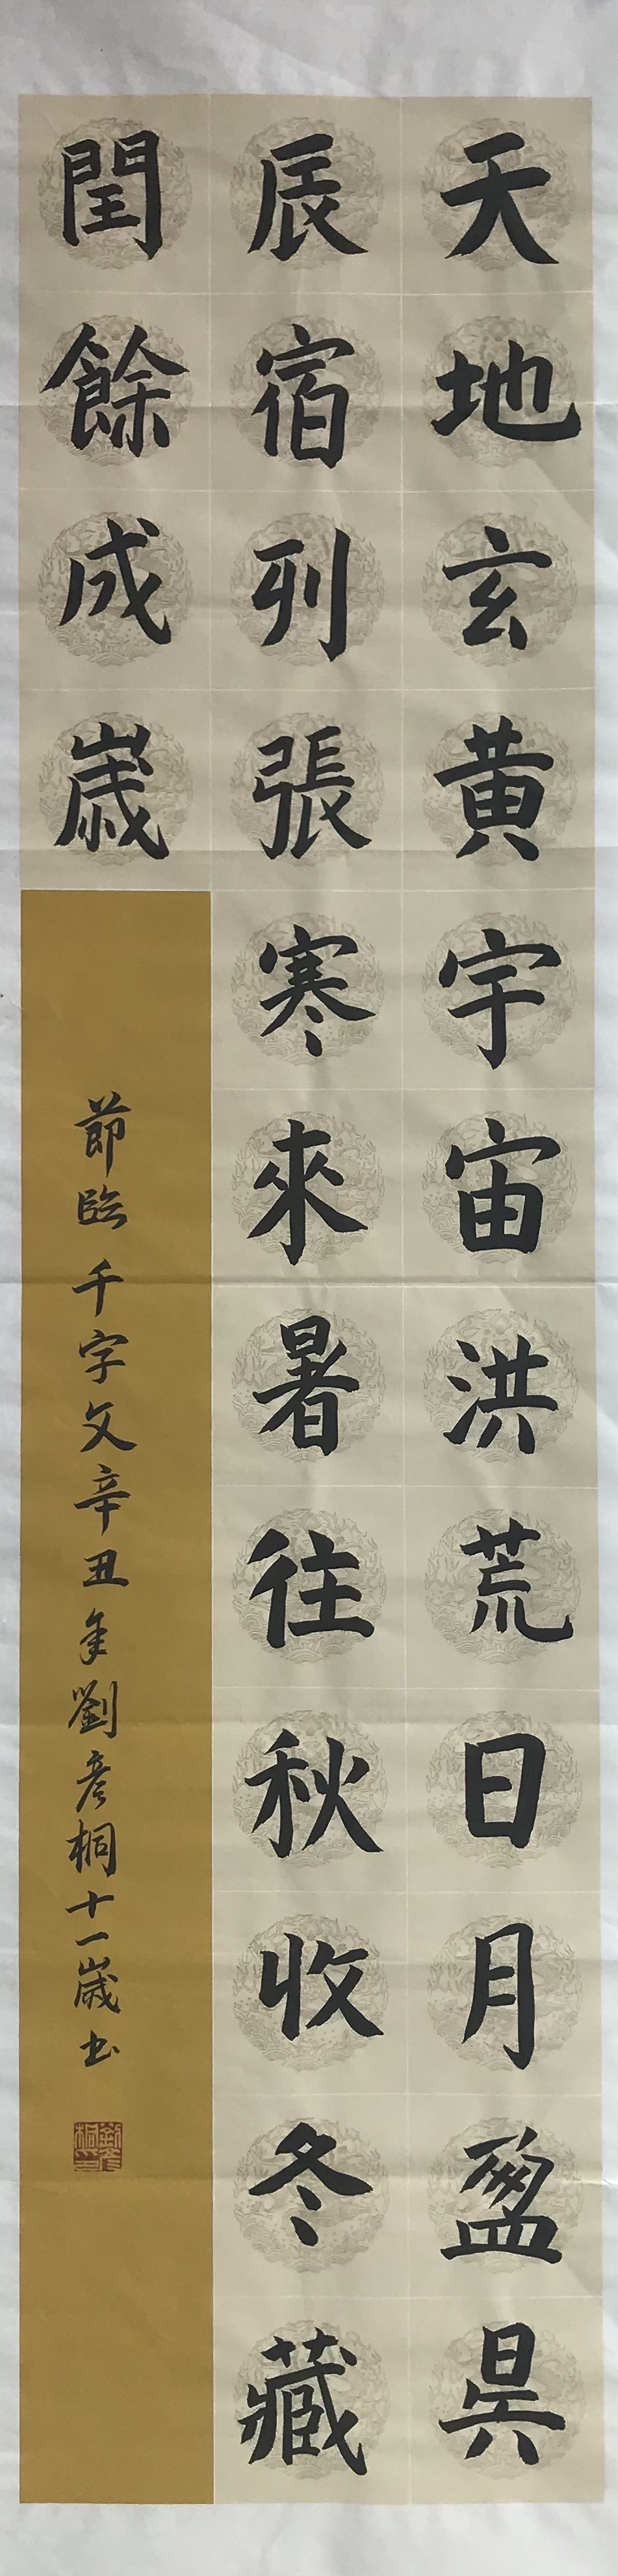 天地玄黄宇宙洪荒日月盈昃
辰宿列張寒來暑往秋收冬藏
閏餘成歲
節臨千字文辛丑年劉彦桐十一歲书